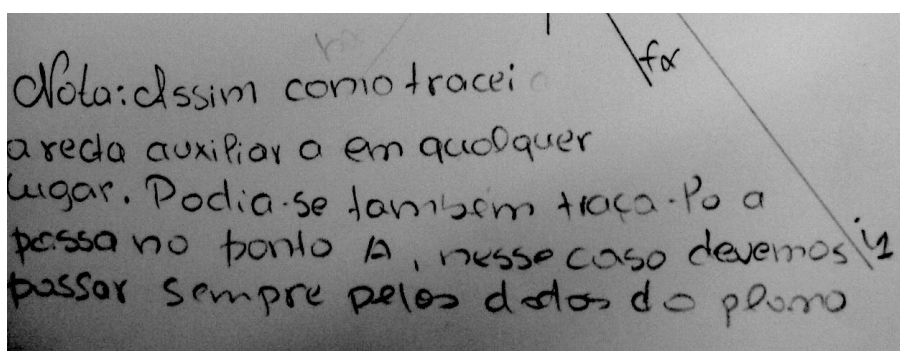 fα
Nota: Assim como tracei
a recta auxiliar a em qualquer
lugar. Podia-se também traça-lo a
passa no ponto A, nesse caso devemos
i1
passar sempre pelos dados do plano